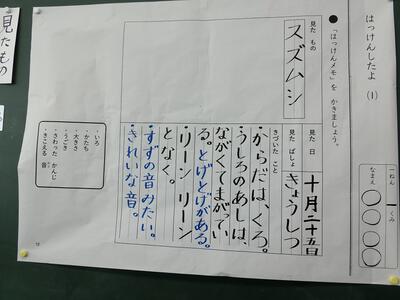 はっけんしたよ (1)
一ねん 一くみ
なまえ ○○○○
●「はっけんメモ」を かきましょう。
見た もの
スズムシ
見た 日
十月二十五日
見た ばしょ
きょうしつ
きづいた こと
・からだは、くろ。
うしろのあしは、
ながくてまがってい
る。とげとげがある。
・リーン リーン
となく。
・すずの音みたい。
・きれいな音。
・いろ
・かたち
・大きさ
・うごき
・さわった かんじ
・きこえる 音
見たもの